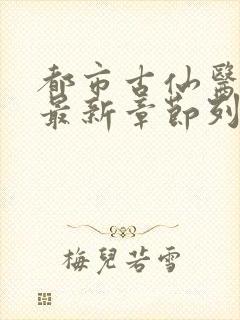 都市古仙醫
最新章節列
梅兒若雪